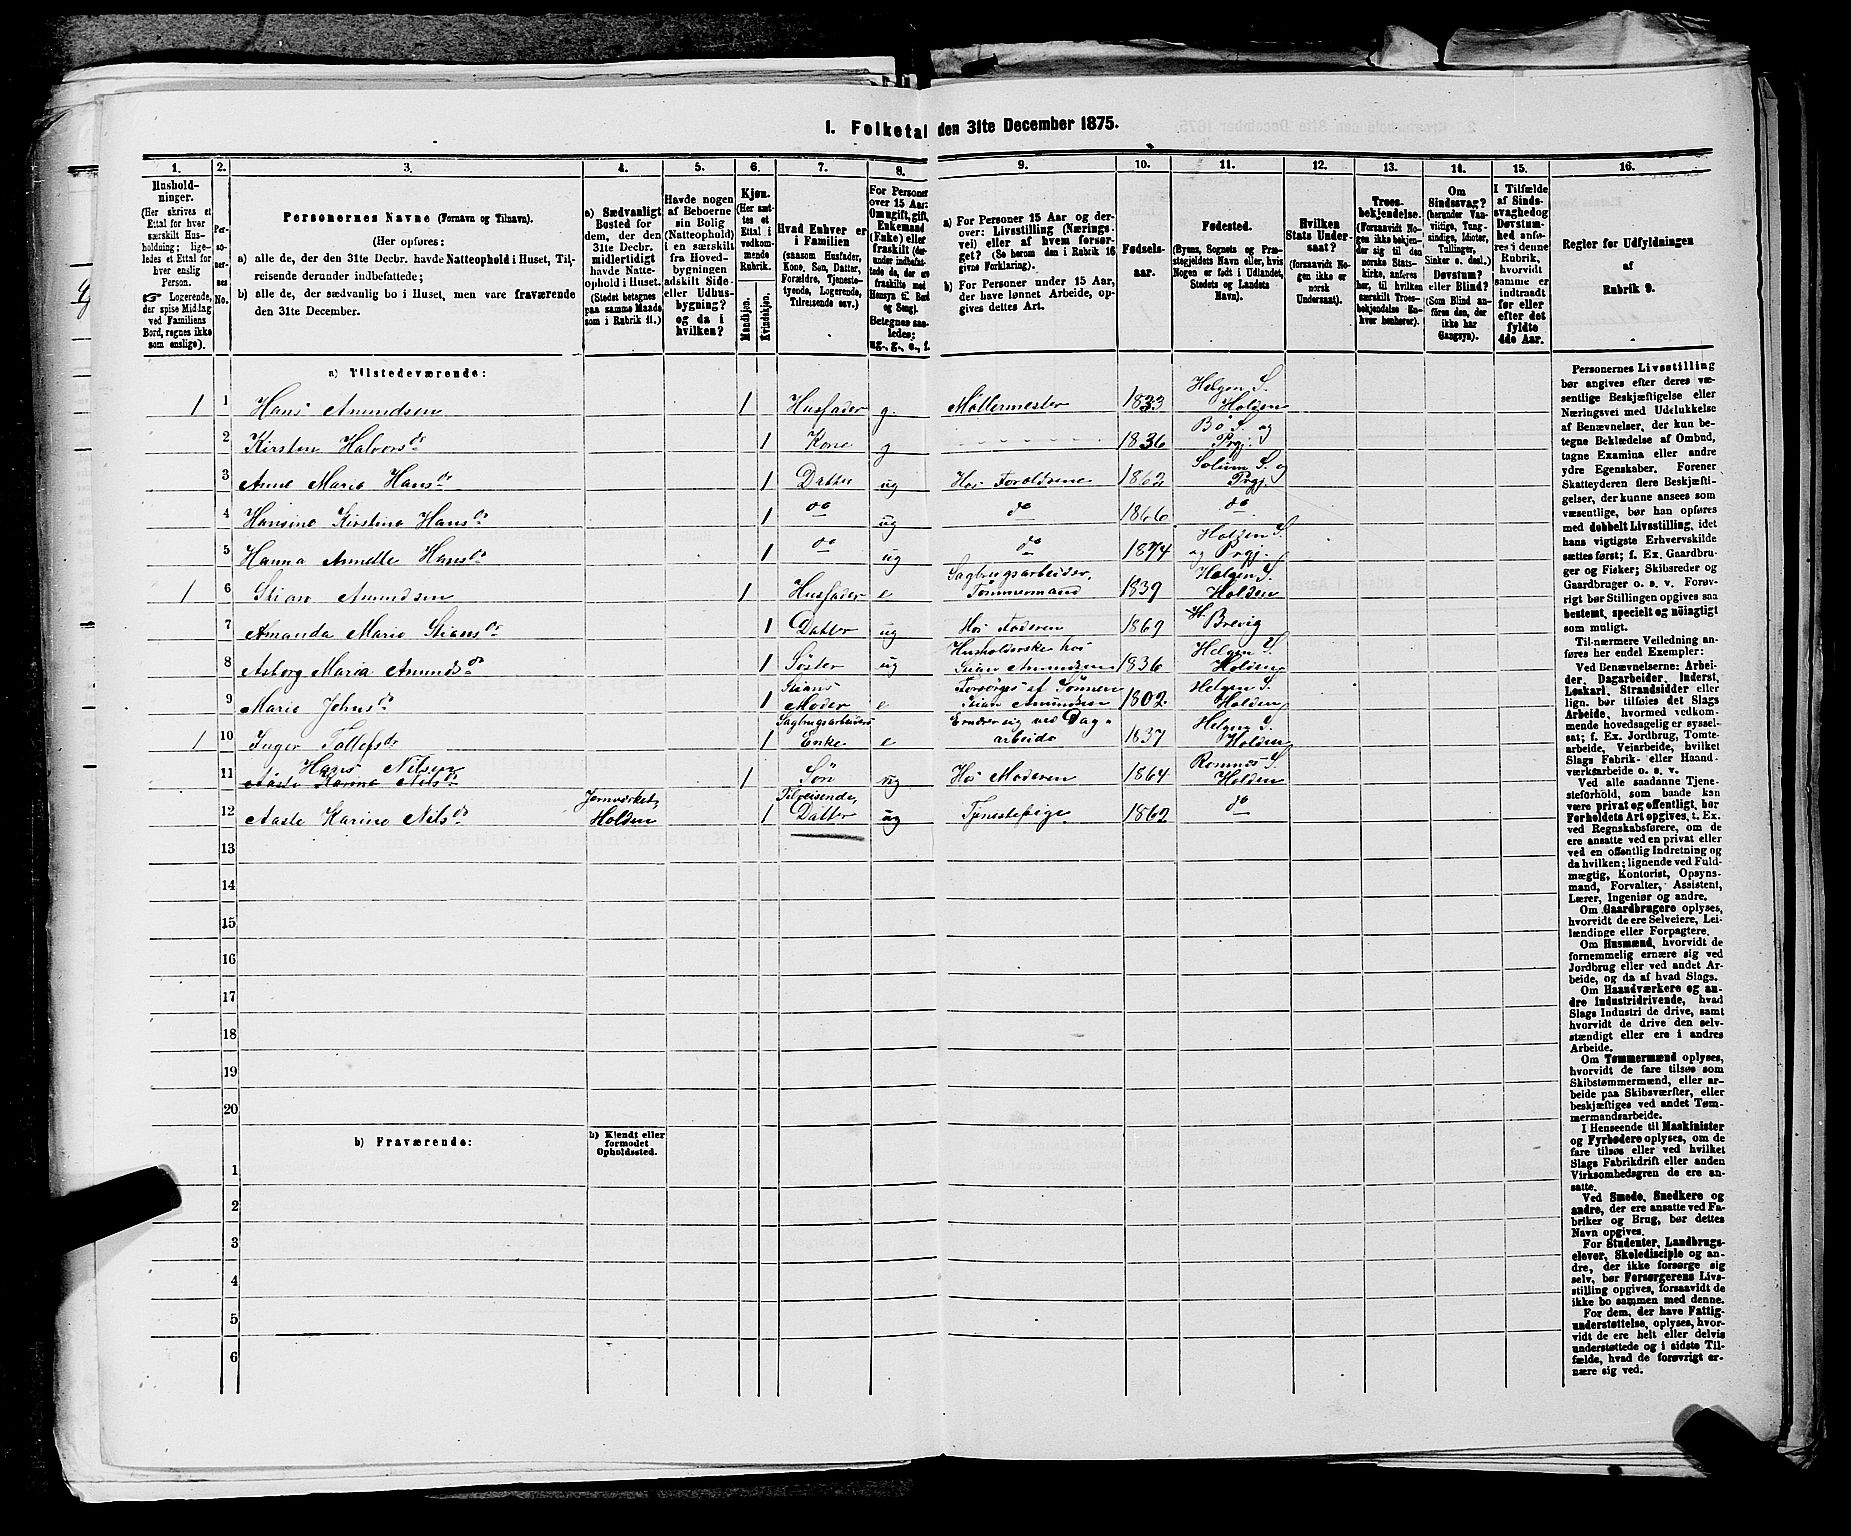 1. Folketal den 31te December 1875.
1. 2. 3. 4. 5. 6. 7. 8. 9. 10. 11. 12. 13. 14. 15. 16.
Hushold-
ninger.
(Her skrives et
Ettal for hver
særskilt Hus-
holdning; lige-
ledes et Ettal for
hver enslig
Person.
☞ Logerende,
der spise Middag
ved Familiens
Bord, regnes ikke
som enslige).
Per-
so-
ner-
nes
No.
Personernes Navne (Fornavn og Tilnavn).
(Her opføres:
a) alle de, der den 31te Decbr. havde Natteophold i Huset, Til-
reisende derunder indbefattede;
b) alle de, der sædvanlig bo i Huset, men vare fraværende
den 31te December.
a) Sædvanligt
Bosted for
dem, der den
31te Decbr.
midlertidigt
havde Natte-
ophold i Huset.
(Stedet betegnes
paa samme Maade
som i Rubrik 11.)
Havde nogen
af Beboerne
sin Bolig
(Natteophold)
i en særskilt
fra Hoved-
bygningen
adskilt Side-
eller Udhus-
bygning?
og da i
hvilken?
Kjøn.
(Her sæt-
tes et
Ettal i
vedkom-
mende
Rubrik.
Mandkjøn.
Kvindekjøn.
Hvad Enhver er
i Familien
(saasom Husfader,
Kone, Søn, Datter,
Forældre, Tjeneste-
tyende, Logerende,
Tilreisende osv.)
For Personer
over 15 Aar:
Om ugift, gift,
Enkemand
(Enke) eller
fraskilt (der-
under indbefat-
tede de, der ere
fraskilte med
Hensyn til Bord
og Seng).
Betegnes saa-
ledes:
ug., g., e., f.
a) For Personer 15 Aar og der-
over: Livsstilling (Nærings-
vei) eller af hvem forsør-
get? (Se herom den i Rubrik 16
givne Forklaring).
b) For Personer under 15 Aar,
der have lønnet Arbeide, op-
gives dettes Art.
Fødsels-
aar.
Fødested.
(Byens, Sognets og Præ-
stegjeldets Navn eller, hvis
Nogen er født i Udlandet,
Stedets og Landets
Navn).
Hvilken
Stats Under-
saat?
(forsaavidt No-
gen ikke er
norsk
Undersaat).
Troes-
bekjendelse.
(Forsaavidt No-
gen ikke bekjen-
der sig til den
norske Stats-
kirke, anføres
her, til hvilken
særskilt Troes-
bekjendelse En-
hver henhører).
Om
Sindssvag?
(herunder Van-
vittige, Tung-
sindige, Idioter,
Tullinger,
Sinker o. desl.).
Døvstum?
eller Blind?
(Som Blind an-
føres den, der
ikke har
Gangsyn).
I Tilfælde
af Sinds-
svaghed og
Døvstum-
hed anfø-
res i denne
Rubrik,
hvorvidt
samme er
indtraadt
før eller
efter det
fyldte
4de Aar.
Regler for Udfyldningen
af
Rubrik 9.
a) Tilstedeværende:
1 1 Hans Amundsen 1 Husfader g. Møllermester 1833 Helgen S. Holden
2 Kirsten Halvorsdr 1 Kone g 1836 Bø S. og Prgj.
3 Anne Marie Hansdr 1 Datter ug Hos Forældrene 1862 Solum S. og Prgj.
4 Hansine Kirstine Hansdr 1 do ug do 1866 do
5 Hanna Annette Hansdr 1 do ug do 1874 Holden S. og Prgj.
1 6 Stian Amundsen 1 Husfader e Sagbrugsarbeider, Tømmermand 1839 Helgen S. Holden
7 Amanda Marie Stiansdr 1 Datter ug Hos Faderen 1869 Brevig
8 Asborg Maria Amundsdr 1 Søster ug Husholderske hos Stian Amundsen 1836 Helgen S. Holden
9 Marie Johnsdr 1 Stians Moder e Forsørges af Sønnen Stian Amundsen 1802 Helgen S. Holden
1 10 Inger Tollefsdr 1 Sagbrugsarbeiders Enke e Ernærer sig ved Dagarbeide 1837 Helgen S. Holden
11 Hans Nilsen 1 Søn ug Hos Moderen 1864 Romnes S. Holden
Aaste Karine Nilsdr
12 Aaste Karine Nilsdr Jernværket, Holden 1 Tilreisende, Datter ug Tjenestepige 1862 do
13
14
15
16
17
18
19
20
b) Fraværende:
b) Kjendt eller
formodet
Opholdssted.
1
2
3
4
5
6
Personernes Livsstilling
bør angives efter deres væ-
sentlige Beskjæftigelse eller
Næringsvei med Udelukkelse
af Benævnelser, der kun be-
tegne Beklædelse af Ombud,
tagne Examina eller andre
ydre Egenskaber. Forener
Skatteyderen flere Beskjæfti-
gelser, der kunne ansees som
væsentlige, bør han opføres
med dobbelt Livsstilling, idet
hans vigtigste Erhvervskilde
sættes først; f. Ex. Gaardbru-
ger og Fisker; Skibsreder og
Gaardbruger o. s. v. Forøv-
rigt bør Stillingen opgives saa
bestemt, specielt og nøiagtigt
som muligt.
Til nærmere Veiledning an-
føres her endel Exempler:
Ved Benævnelserne: Arbei-
der, Dagarbeider, Inderst,
Løskarl, Strandsidder eller
lign. bør tilføies det Slags
Arbeide, hvormed vedkom-
mende hovedsagelig er syssel-
sat; f. Ex. Jordbrug, Tomte-
arbeide, Veiarbeide, hvilket
Slags Fabrik- eller Haand-
værksarbeide o. s. v.
Ved alle saadanne Tjene-
steforhold, som baade kan
være privat og offentligt, bør
Forholdets Art opgives, t. Ex.
ved Regnskabsførere, om de
ere ansatte ved en privat eller
ved en offentlig Indretning og
da hvilken; lignende ved Fuld-
mægtig, Kontorist, Opsyns-
mand, Forvalter, Assistent,
Lærer, Ingeniør og andre.
Om Gaardbrugere oplyses,
hvorvidt de ere Selveiere, Lei-
lændinge eller Forpagtere.
Om Husmænd, hvorvidt de
fornemmelig ernære sig ved
Jordbrug eller ved andet Ar-
beide, og da af hvad Slags.
Om Haandværkere og an-
dre Industridrivende, hvad
Slags Industri de drive, samt
hvorvidt de drive den selv-
stændigt eller ere i andres
Arbeide.
Om Tømmermænd oplyses,
hvorvidt de fare tilsøs som
Skibstømmermænd, eller ar-
beide paa Skibsværfter, eller
beskjæftiges ved andet Tøm-
mermandsarbeide.
I Henseende til Maskinister
og Fyrbødere oplyses, om de
fare tilsøs eller ved hvilket
Slags Fabrikdrift eller anden
Virksomhedsgren de ere an-
satte.
Ved Smede, Snedkere og
andre, der ere ansatte ved Fa-
briker og Brug, bør dettes
Navn opgives.
For Studenter, Landbrugs-
elever, Skoledisciple og an-
dre, der ikke forsørge sig
selv, bør Forsørgerens Livs-
stilling opgives, forsaavidt de
ikke bo sammen med denne.
For dem, der have Fattig-
understøttelse, oplyses, hvor-
vidt de ere helt eller delvis
understøttede og i sidste Til-
fælde, hvad de forøvrigt er-
nære sig ved.